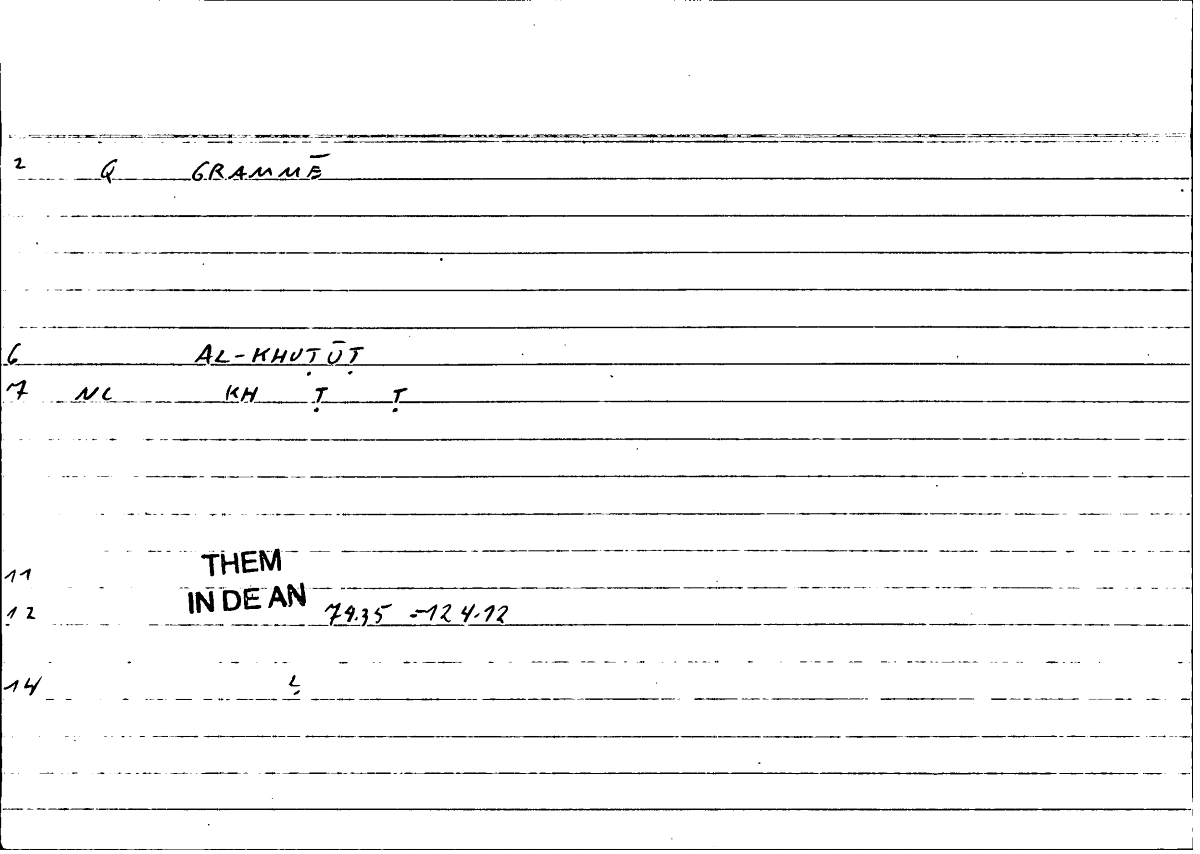 2 Q GRAMMĒ
6 AL-KHUṬŪṬ
7 NL KH Ṭ Ṭ
THEM
11
IN DE AN
12 79.35 =124.12
14